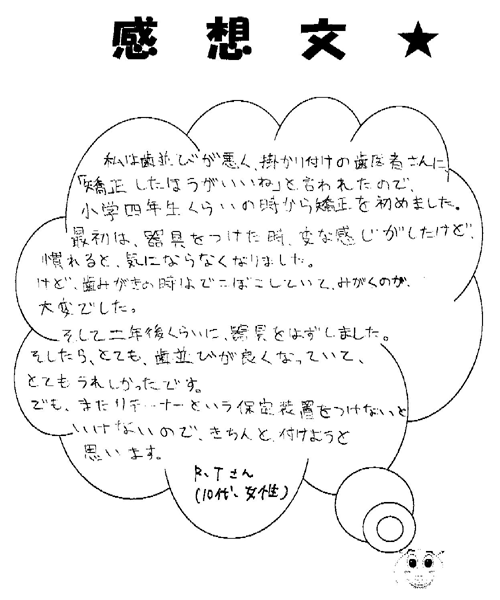 感想文★
私は歯並びが悪く、掛かり付けの歯医者さんに、
「矯正したほうがいいね」と言われたので、
小学四年生くらいの時から矯正を初めました。
最初は、器具をつけた時、変な感じがしたけど、
慣れると、気にならなくなりました。
けど、歯みがきの時はでこぼこしていて、みがくのが、
大変でした。
そして二年後くらいに、器具をはずしました。
そしたら、とても、歯並びが良くなっていて、
とてもうれしかったです。
でも、またリテーナーという保定装置をつけないと
いけないので、きちんと、付けようと
思います。
R、Tさん
(10代、女性)